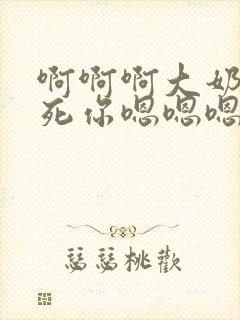 啊啊啊大奶
死你嗯嗯嗯
瑟瑟桃歡